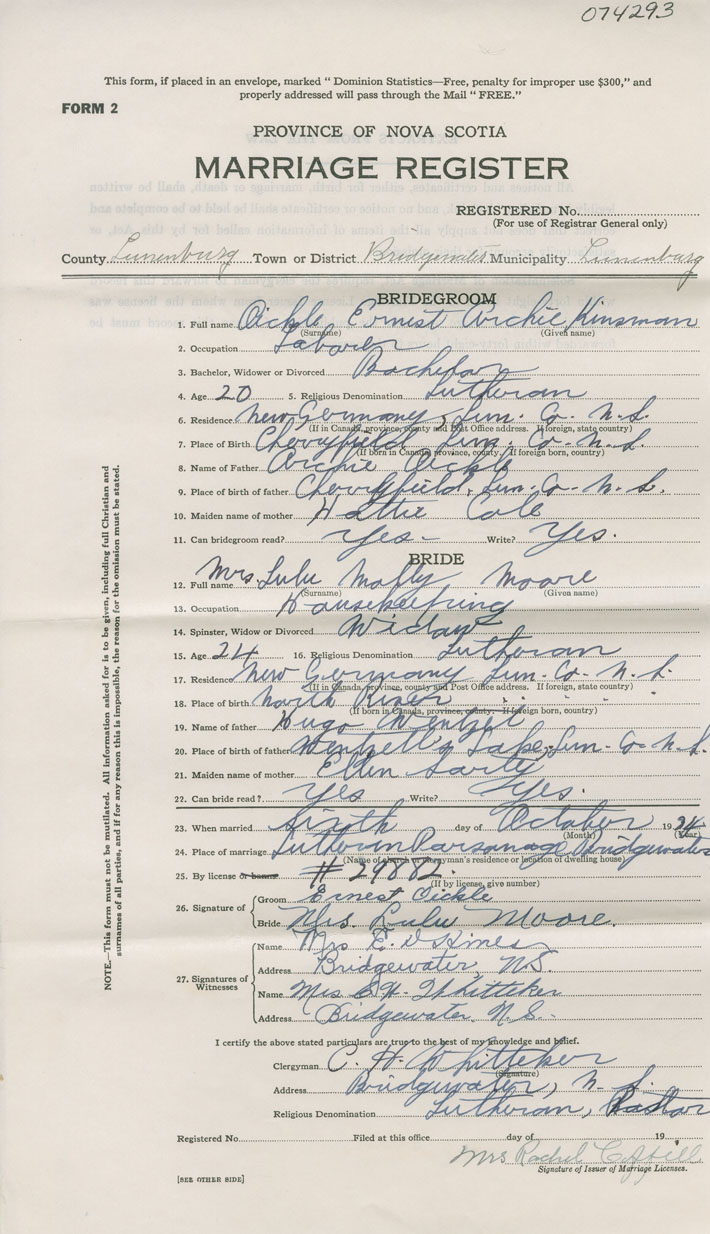 074293
This form, if placed in an envelope, marked " Dominion Statistics—Free, penalty for improper use $300," and
properly addressed will pass through the Mail " FREE."
FORM 2
PROVINCE OF NOVA SCOTIA
MARRIAGE REGISTER
REGISTERED No.
(For use of Registrar General only)
County Lunenburg Town or District Bridgewater Municipality Lunenburg
BRIDEGROOM
1. Full name Oickle Ernest Archie Kinsman
(Surname) (Given name)
2. Occupation Laborer
3. Bachelor, Widower or Divorced Bachelor
4. Age 20 5. Religious Denomination Lutheran
6. Residence New Germany, Lun. Co. N.S.
(If in Canada, province, county and Post Office address. If foreign, state country)
7. Place of Birth Cherryfield Lun. Co. N.S.
(If born in Canada, province, county. If foreign born, country)
8. Name of Father Archie Oickle
9. Place of birth of father Cherryfield, Lun. Co. N.S.
10. Maiden name of mother Hattie Cole
11. Can bridegroom read? Yes- Write? Yes.
BRIDE
12. Full name Mrs. Lulu Molly Moore
(Surname) (Given name)
13. Occupation Housekeeping
14. Spinster, Widow or Divorced Widow
15. Age 24 16. Religious Denomination Lutheran
17. Residence New Germany Lun. Co. N.S.
(If in Canada, province, county and Post Office address. If foreign, state country)
18. Place of birth North River " " "
(If born in Canada, province, county. If foreign born, country)
19. Name of father Hugo Wentzel
20. Place of birth of father Wentzell's Lake, Lun. Co. N.S.
21. Maiden name of mother Ellen
22. Can bride read? Yes Write? Yes.
23. When married Sixth day of October 1924
(Month) (Year)
24. Place of marriage Lutheran Parsonage Bridgewater
(Name of church or clergyman's residence or location of dwelling house)
25. By license or banns # 29882.
(If by license, give number)
26. Signature of Groom Ernest Oickle
Bride Mrs. Lulu Moore.
27. Signatures of Witnesses Name Mrs E. D. Himes
Address Bridgewater, N.S.
Name Mrs C. H. Whitteker
Address Bridgewater, N.S.
I certify the above stated particulars are true to the best of my knowledge and belief.
Clergyman C. H. Whitteker
(Signature)
Address Bridgewater, N.S.
Religious Denomination Lutheran, Pastor
Registered No. Filed at this office day of 19
Mrs Rachel
Signature of Issuer of Marriage Licenses.
[SEE OTHER SIDE]
NOTE.—This form must not be mutilated. All information asked for is to be given, including full Christian and
surnames of all parties, and if for any reason this is impossible, the reason for the omission must be stated.